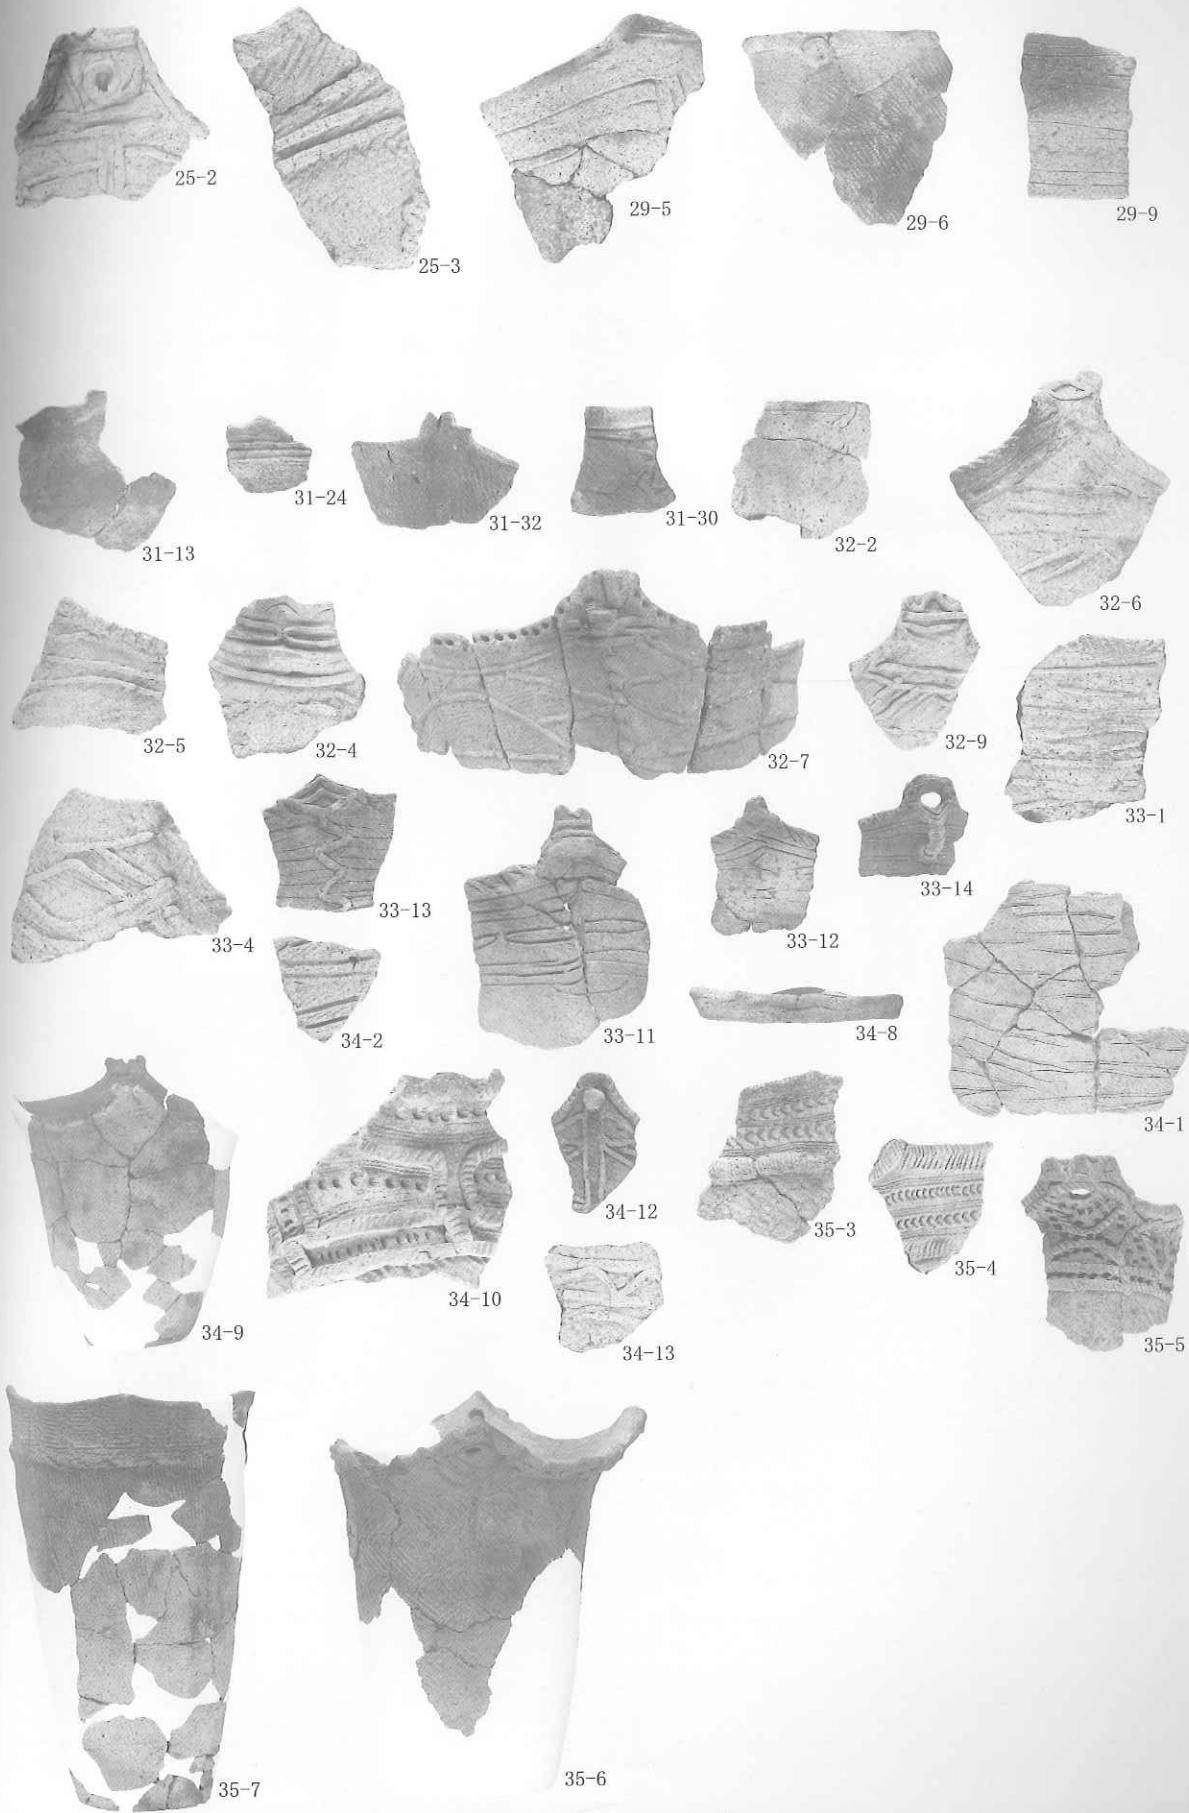 25-2
25-3
29-5
29-6
29-9
31-13
31-24
31-32
31-30
32-2
32-6
32-5
32-4
32-7
32-9
33-1
33-4
33-13
33-11
33-12
33-14
34-2
34-8
34-1
34-9
34-10
34-12
34-13
35-3
35-4
35-5
35-7
35-6